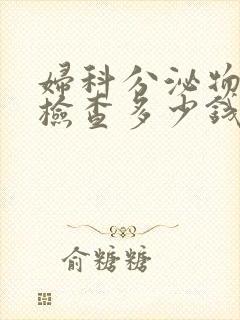 婦科分泌物
檢查多少錢
俞糖糖